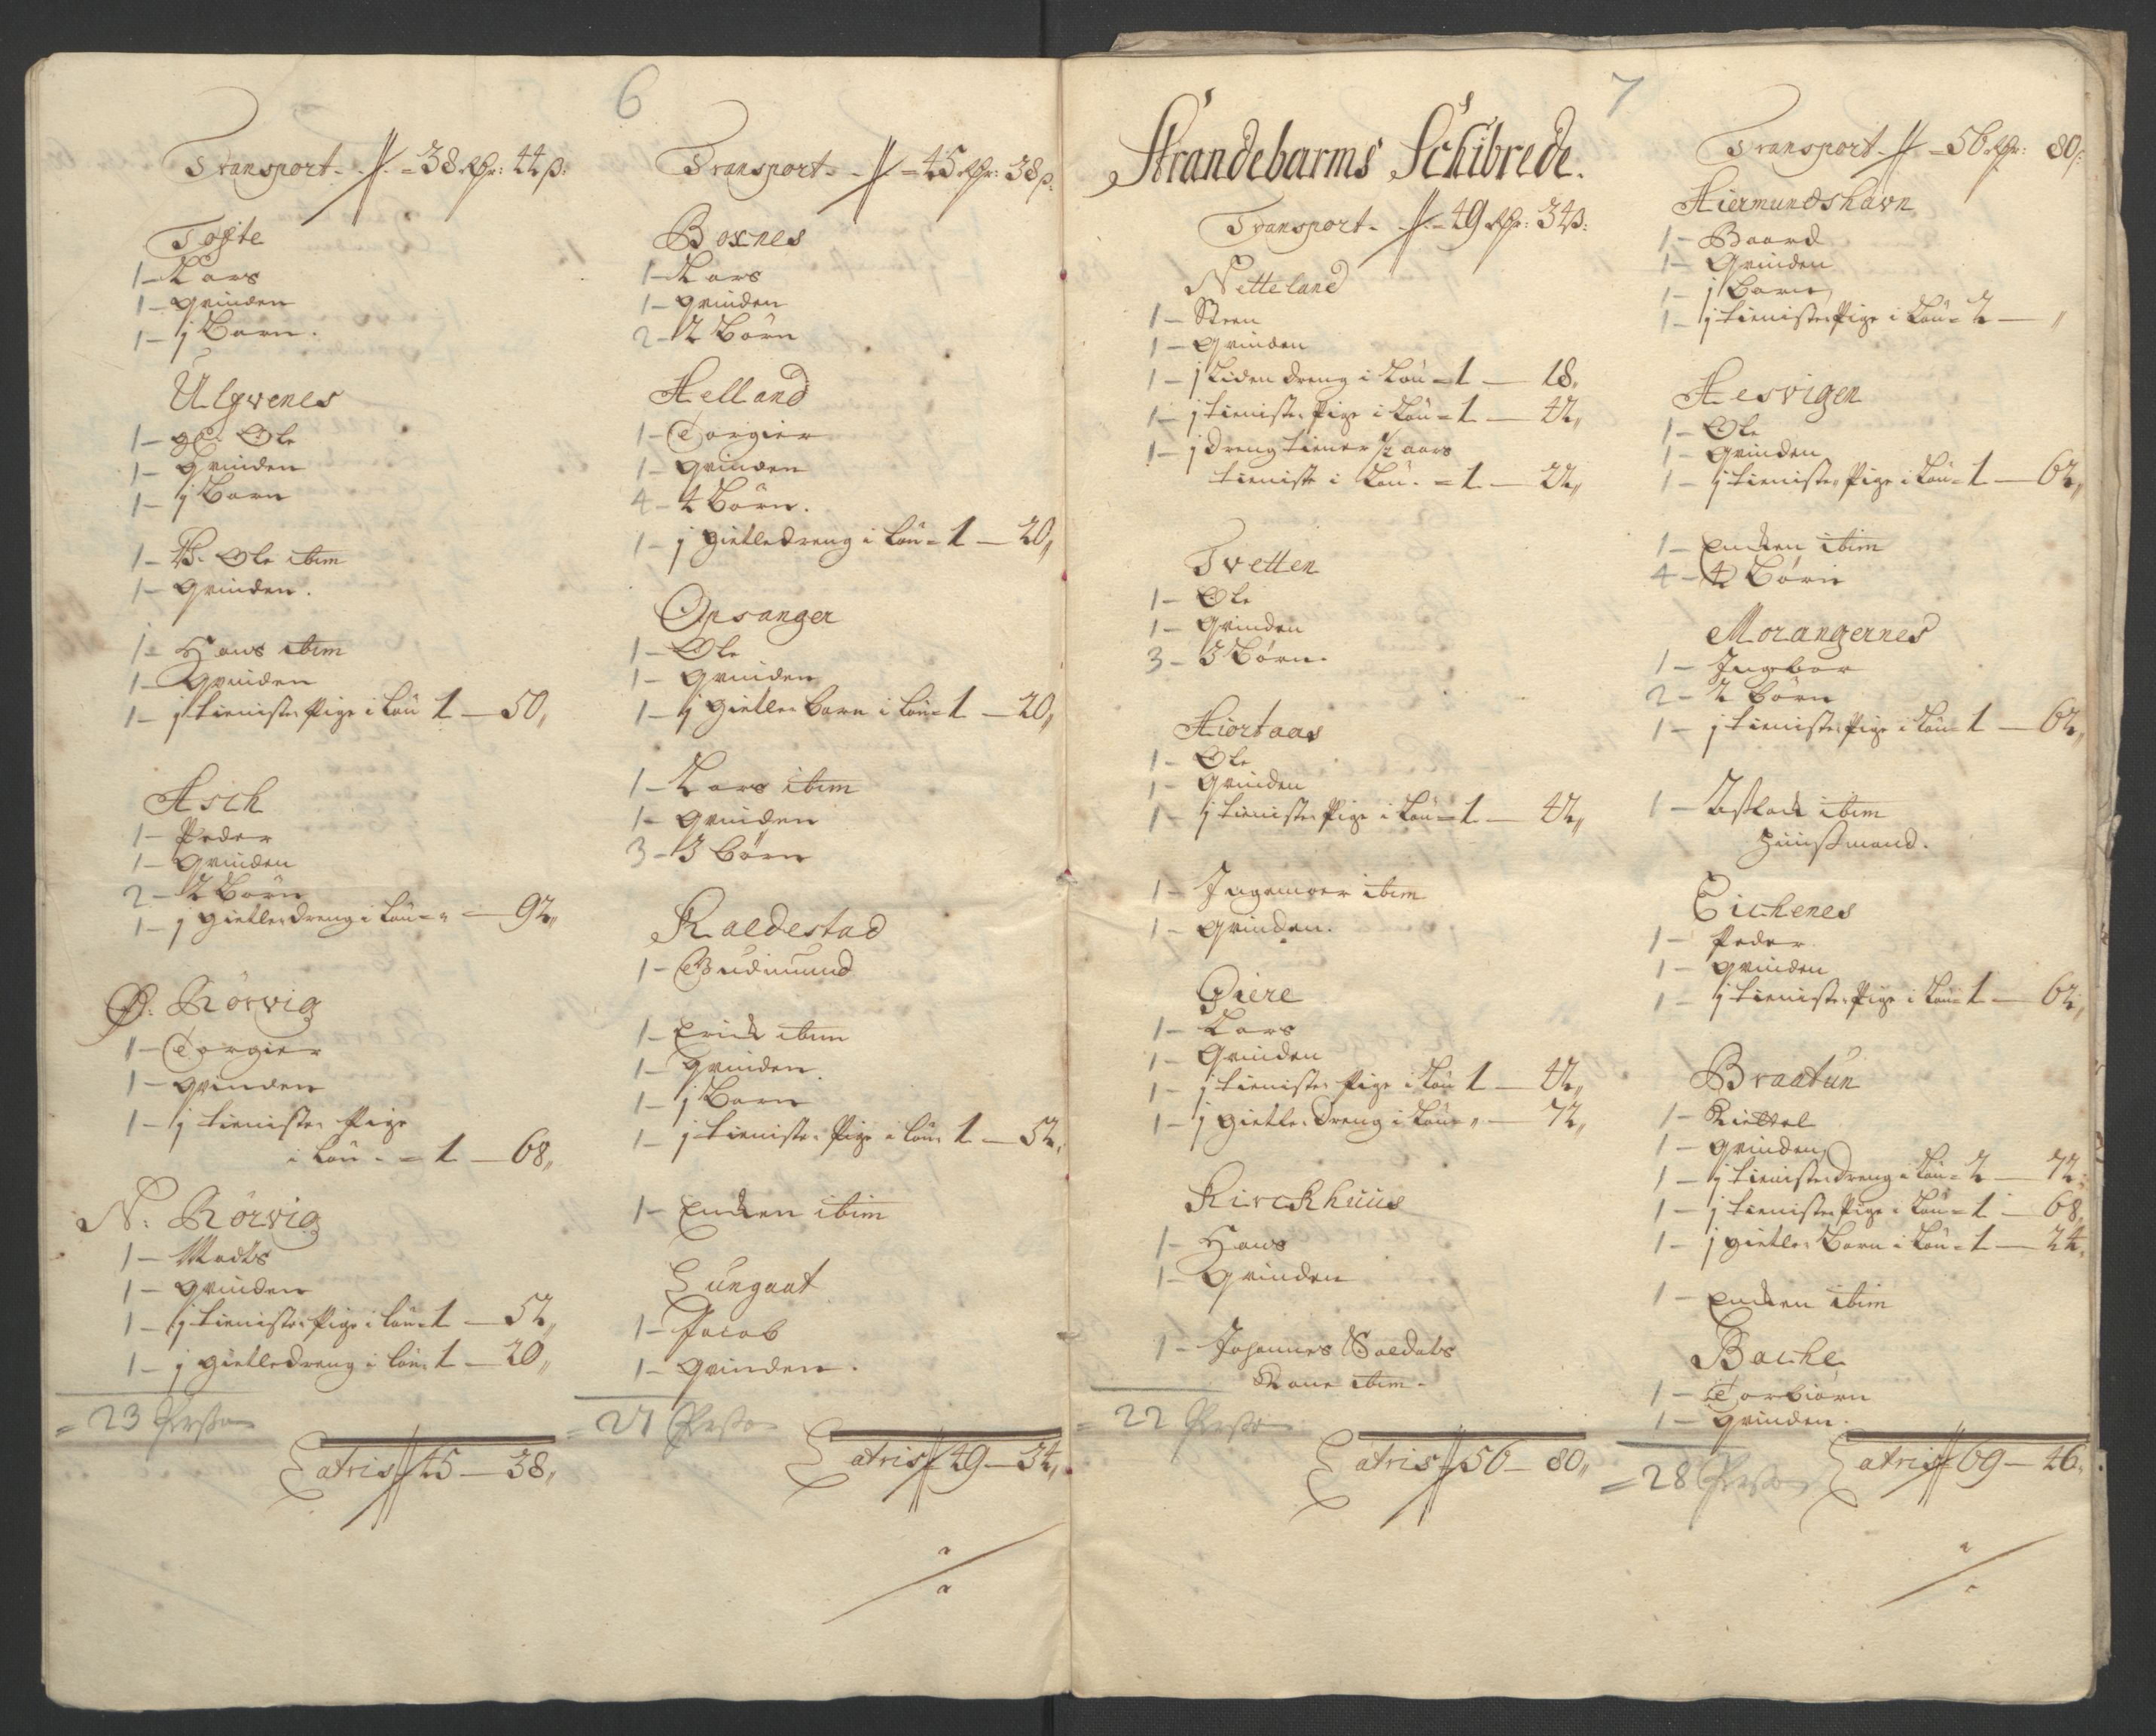 6
Transport - 38 Rdr: 44 ß:
Tofte
1 - Lars
1 - Qvinden
1 - j Barn.
Ulgvenes
1 - gl. Ole
1 - Qvinden
1 - j Barn
1 - Ole ibim
1 - Qvinden.
1 - Hans ibim
1 - Qvinden
1 - j tieniste Pige i Lön 1 - 50,,
Asch
1 - Peder
1 - Qvinden
2 - 2 Börn
1 - j gietledreng i Lön = " - 92,,
Ø: Rörvig
1 - Torgier
1 - Qvinden
1 - j tieniste Pige
i Lön - = 1 - 68,,
N: Rörvig
1 - Madts
1 - Qvinden
1 - j tieniste Pige i Lön = 1 - 52,,
1 - j gietledreng i Lön = 1 - 20,,
= 23 Perso
Latris 45 - 38,,
Transport - 45 Rdr: 38 ß.
Boxnes
1 - Lars
1 - Qvinden
2 - 2 Börn
Helland
1 - Torgier
1 - Qvinden
4 - 4 Börn.
1 - j gietledreng i Lön = 1 - 20,,
Opsanger
1 - Ole
1 - Qvinden
1 - j gietle Barn i Lön = 1 - 20,,
1 - Lars ibim
1 - Qvinden
3 - 3 Börn
Raldestad
1 - Gudmund
1 - Erick ibim
1 - Qvinden
1 - j Barn
1 - j tieniste Pige i Lön 1 - 52,
1 - Encken ibim
Lungaat
1 - Jacob
1 - Qvinden.
= 27 Perso
Latris 49 - 34,,
7
Strandebarms Schibrede.
Transport - 49 Rdr: 34 ß:
Netteland
1 - Steen
1 - Qvinden
1 - j Liden dreng i Lön = 1 - 18,
1 - j tieniste Pige i Lön = 1 - 42,,
1 - j dreng tiener 1/2 aars
tieniste i Lön. = 1 - 22,,
Tvetten
1 - Ole
1 - Qvinden
3 - 3 Börn.
Hiortaas
1 - Ole
1 - Qvinden
1 - j tieniste Pige i Lön = 1 - 42,,
1 - Ingemoer ibim
1 - Qvinden.
Giere
1 - Lars
1 - Qvinden
1 - j tieniste Pige i Lön 1 - 42,,
1 - j gietle dreng i Lön = " - 72,,
Kirckhuus
1 - Hans
1 - Qvinden
1 - Johannes Soldats
Kone ibim.
= 22 Perso
Latris 56 - 80,,
Transport - 56 Rdr: 80 ß:
Hiermundshavn
1 - Baard
1 - Qvinden
1 - j Barn
1 - j tieniste Pige i Lön = 2 - "
Hesvigen
1 - Ole
1 - Qvinden
1 - j tieniste Pige i Lön = 1 - 62,,
1 - Encken ibim
4 - 4 Börn
Morangernes
1 - Ingebor
2 - 2 Börn
1 - j tieniste Pige i Lön = 1 - 62,,
1 - Aslack ibim
huusmand.
Eichenes
1 - Peder
1 - Qvinden
1 - j tieniste Pige i Lön = 1 - 62,
Braatun
1 - Kiettel
1 - Qvinden
1 - j tieniste dreng i Lön = 2 - 72,
1 - j tieniste Pige i Lön = 1 - 68,
1 - j gietle Barn i Lön = 1 - 24,
1 - Encken ibim
Bache
1 - Torbiörn
1 - Qvinden.
= 28 Perso
Latris 69 - 46,